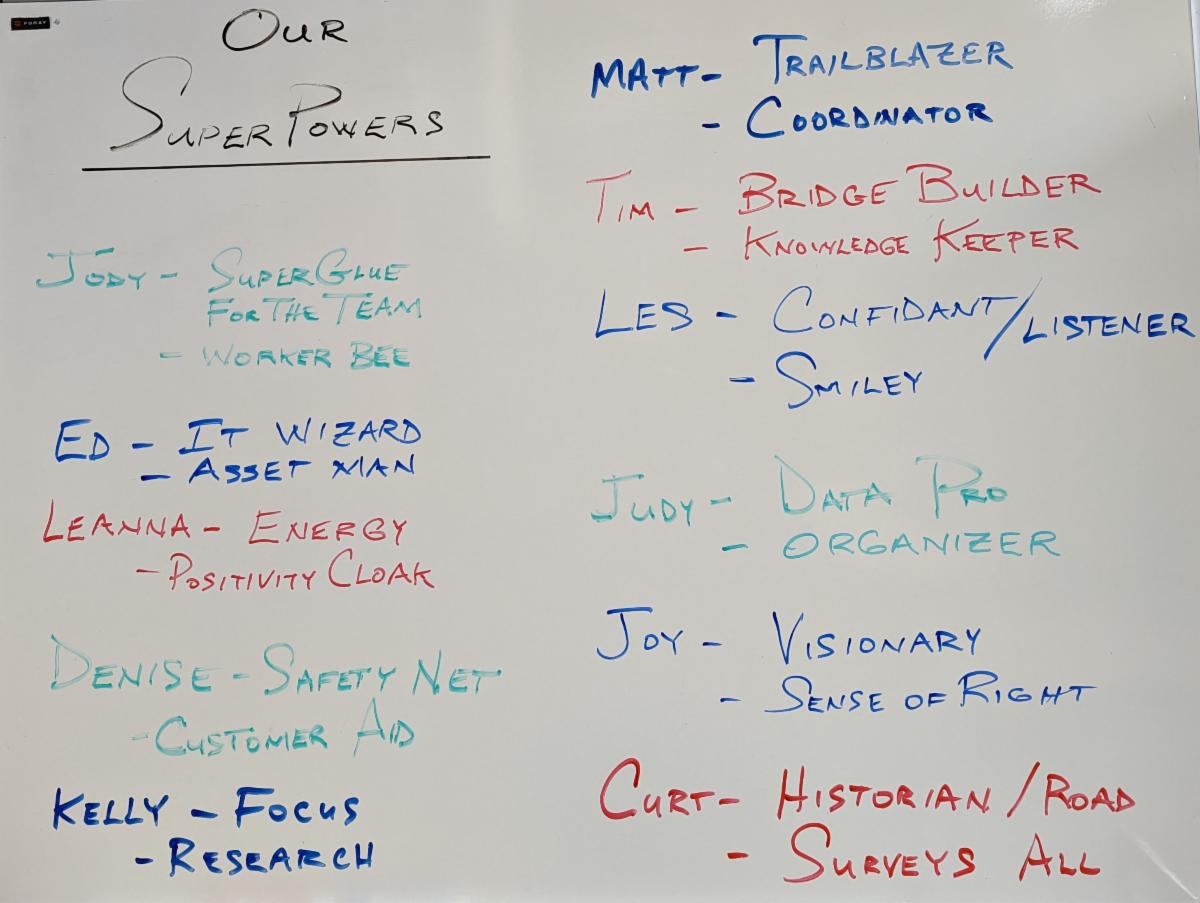 Our
SuperPowers
Jody - SuperGlue
For The Team
- Worker Bee
Ed - It Wizard
- Asset Man
Leanna - Energy
- Positivity Cloak
Denise - Safety Net
- Customer Aid
Kelly - Focus
- Research
Matt - Trailblazer
- Coordinator
Tim - Bridge Builder
- Knowledge Keeper
Les - Confidant/Listener
- Smiley
Judy - Data Pro
- Organizer
Joy - Visionary
- Sense of Right
Curt - Historian/Road
- Surveys All